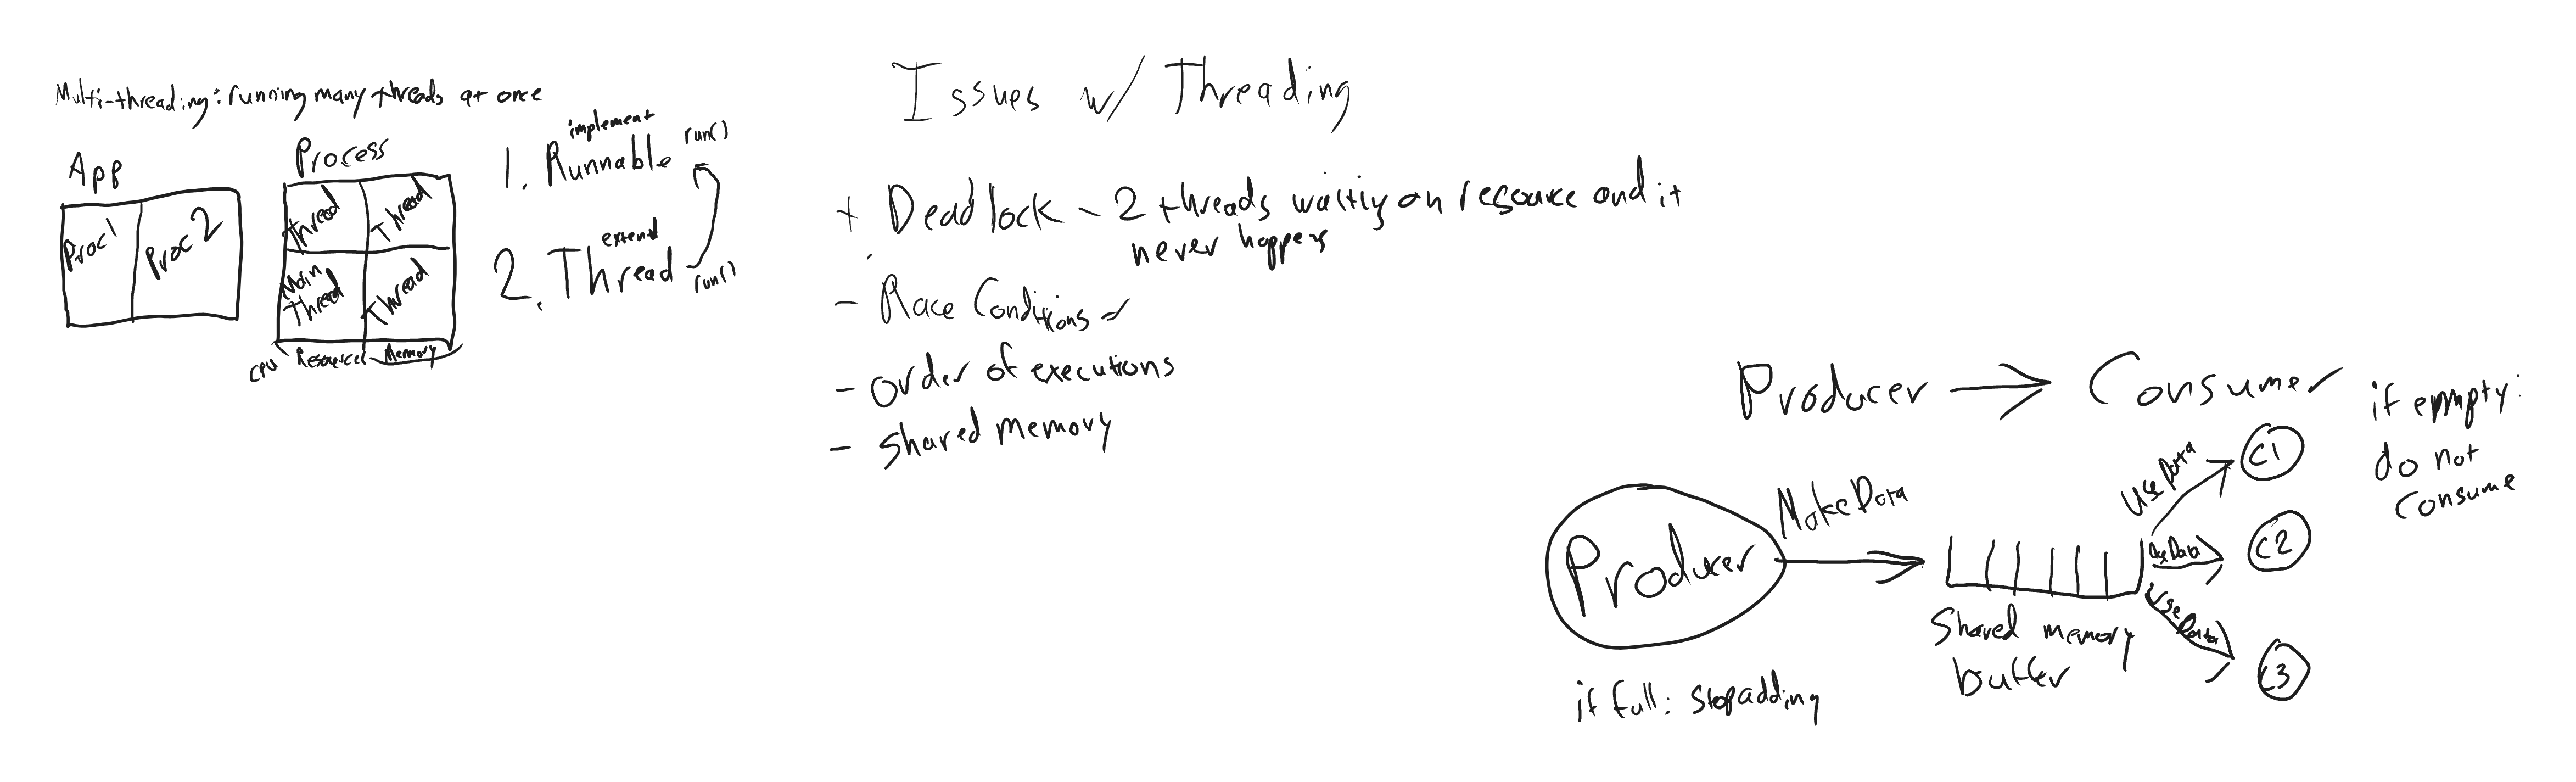 Multi-threading: running many threads at once
App
Proc 1
Proc 2
Process
Thread
Thread
Main
Thread
Thread
CPU
Resources
Memory
implement
1. Runnable run()
extend
2. Thread run()
Issues w/ Threading
+ Deadlock - 2 threads waiting on resource and it
never happens
- Race Conditions
- order of executions
- shared memory
Producer → Consumer
if empty:
do not
consume
Producer
Make Data
Use Data
C1
Use Data
C2
Use Data
C3
Shared memory
buffer
if full: stop adding